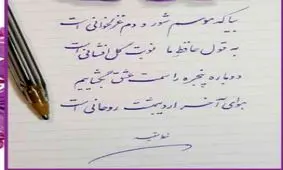 بیا که موسم شور و دم غزلخوانی است
به قول حافظ ما نوبت گل افشانی است
دوباره پنجره را سمت عشق بگشاییم
هوای آخر اردیبهشت روحانی است